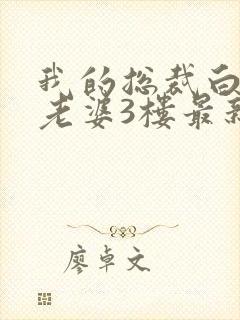 我的总裁白
老婆3楼最新
廖卓文